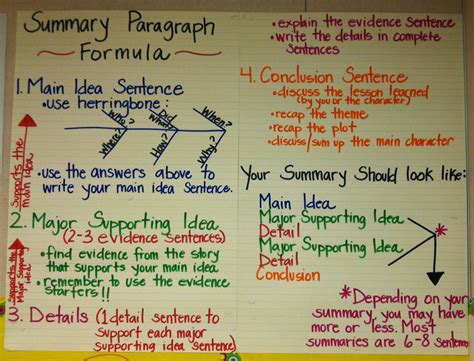 Summary Paragraph
Formula
1. Main Idea Sentence
• use herringbone:
Who?
Did What?
When?
Where?
How?
Why?
• use the answers above to
write your main idea sentence.
Supports the
main idea
2. Major Supporting Idea
(2-3 evidence sentences)
• find evidence from the story
that supports your main idea
• remember to use the evidence
starters!!
Supports the
Major Supporting
Idea
3. Details (1 detail sentence to
support each major
supporting idea sentence)
• explain the evidence sentence
• write the details in complete
sentences
4. Conclusion Sentence
• discuss the lesson learned
(by you or the character)
• recap the theme
• recap the plot
• discuss/sum up the main character
Your Summary Should look like:
Main Idea
Major Supporting Idea
Detail
Major Supporting Idea
Detail
Conclusion
*
*Depending on your
summary, you may have
more or less. Most
summaries are 6-8 sentences